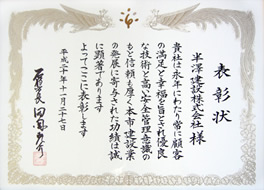 表彰状
半澤建設株式会社様
貴社は永年にわたり常に顧客
の満足と幸福を旨とされ優良
な技術と高い安全管理意識の
もと信頼も厚く本市建設業
の発展に寄与された功績は誠
に顕著であります
よってここに表彰します
平成二十年十一月二十七日